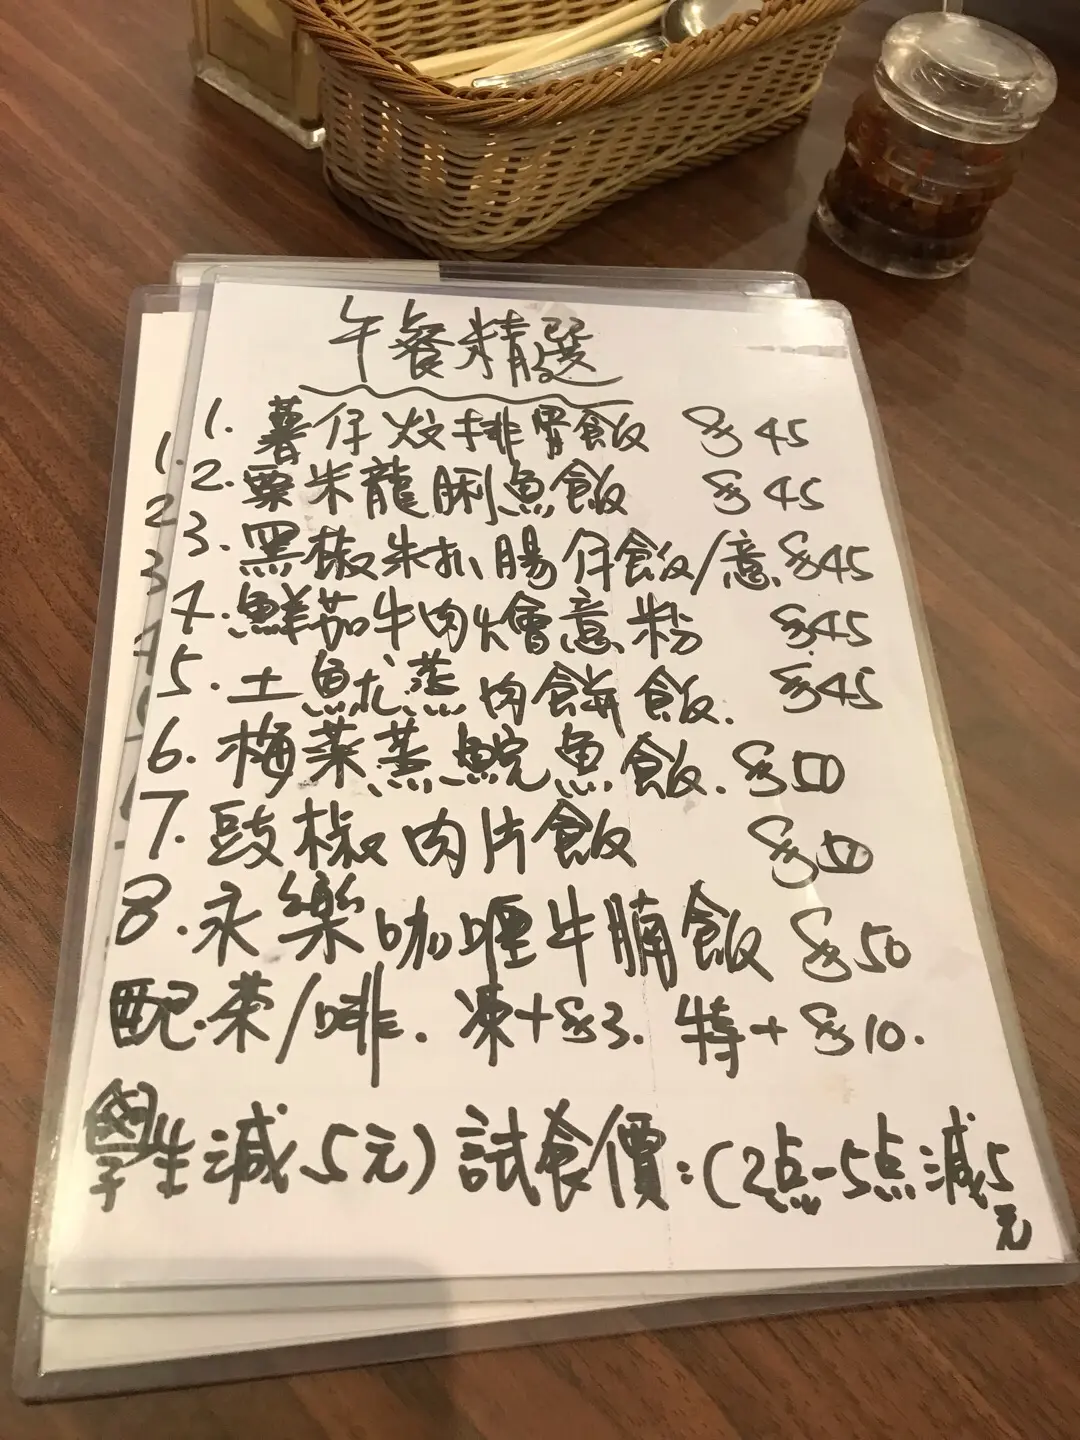 午餐精選
1. 薯仔炆排骨飯 $45
2. 粟米龍脷魚飯 $45
3. 黑椒朱扒腸仔飯/意 $45
4. 鮮茄牛肉燴意粉 $45
5. 土魷蒸肉餅飯. $45
6. 梅菜蒸鯇魚飯. $50
7. 豉椒肉片飯 $50
8. 永樂咖喱牛腩飯 $50
配.茶/啡. 凍+$3. 特+$10.
學生減5元) 試食價:(2点-5点減5元
1.
2
3